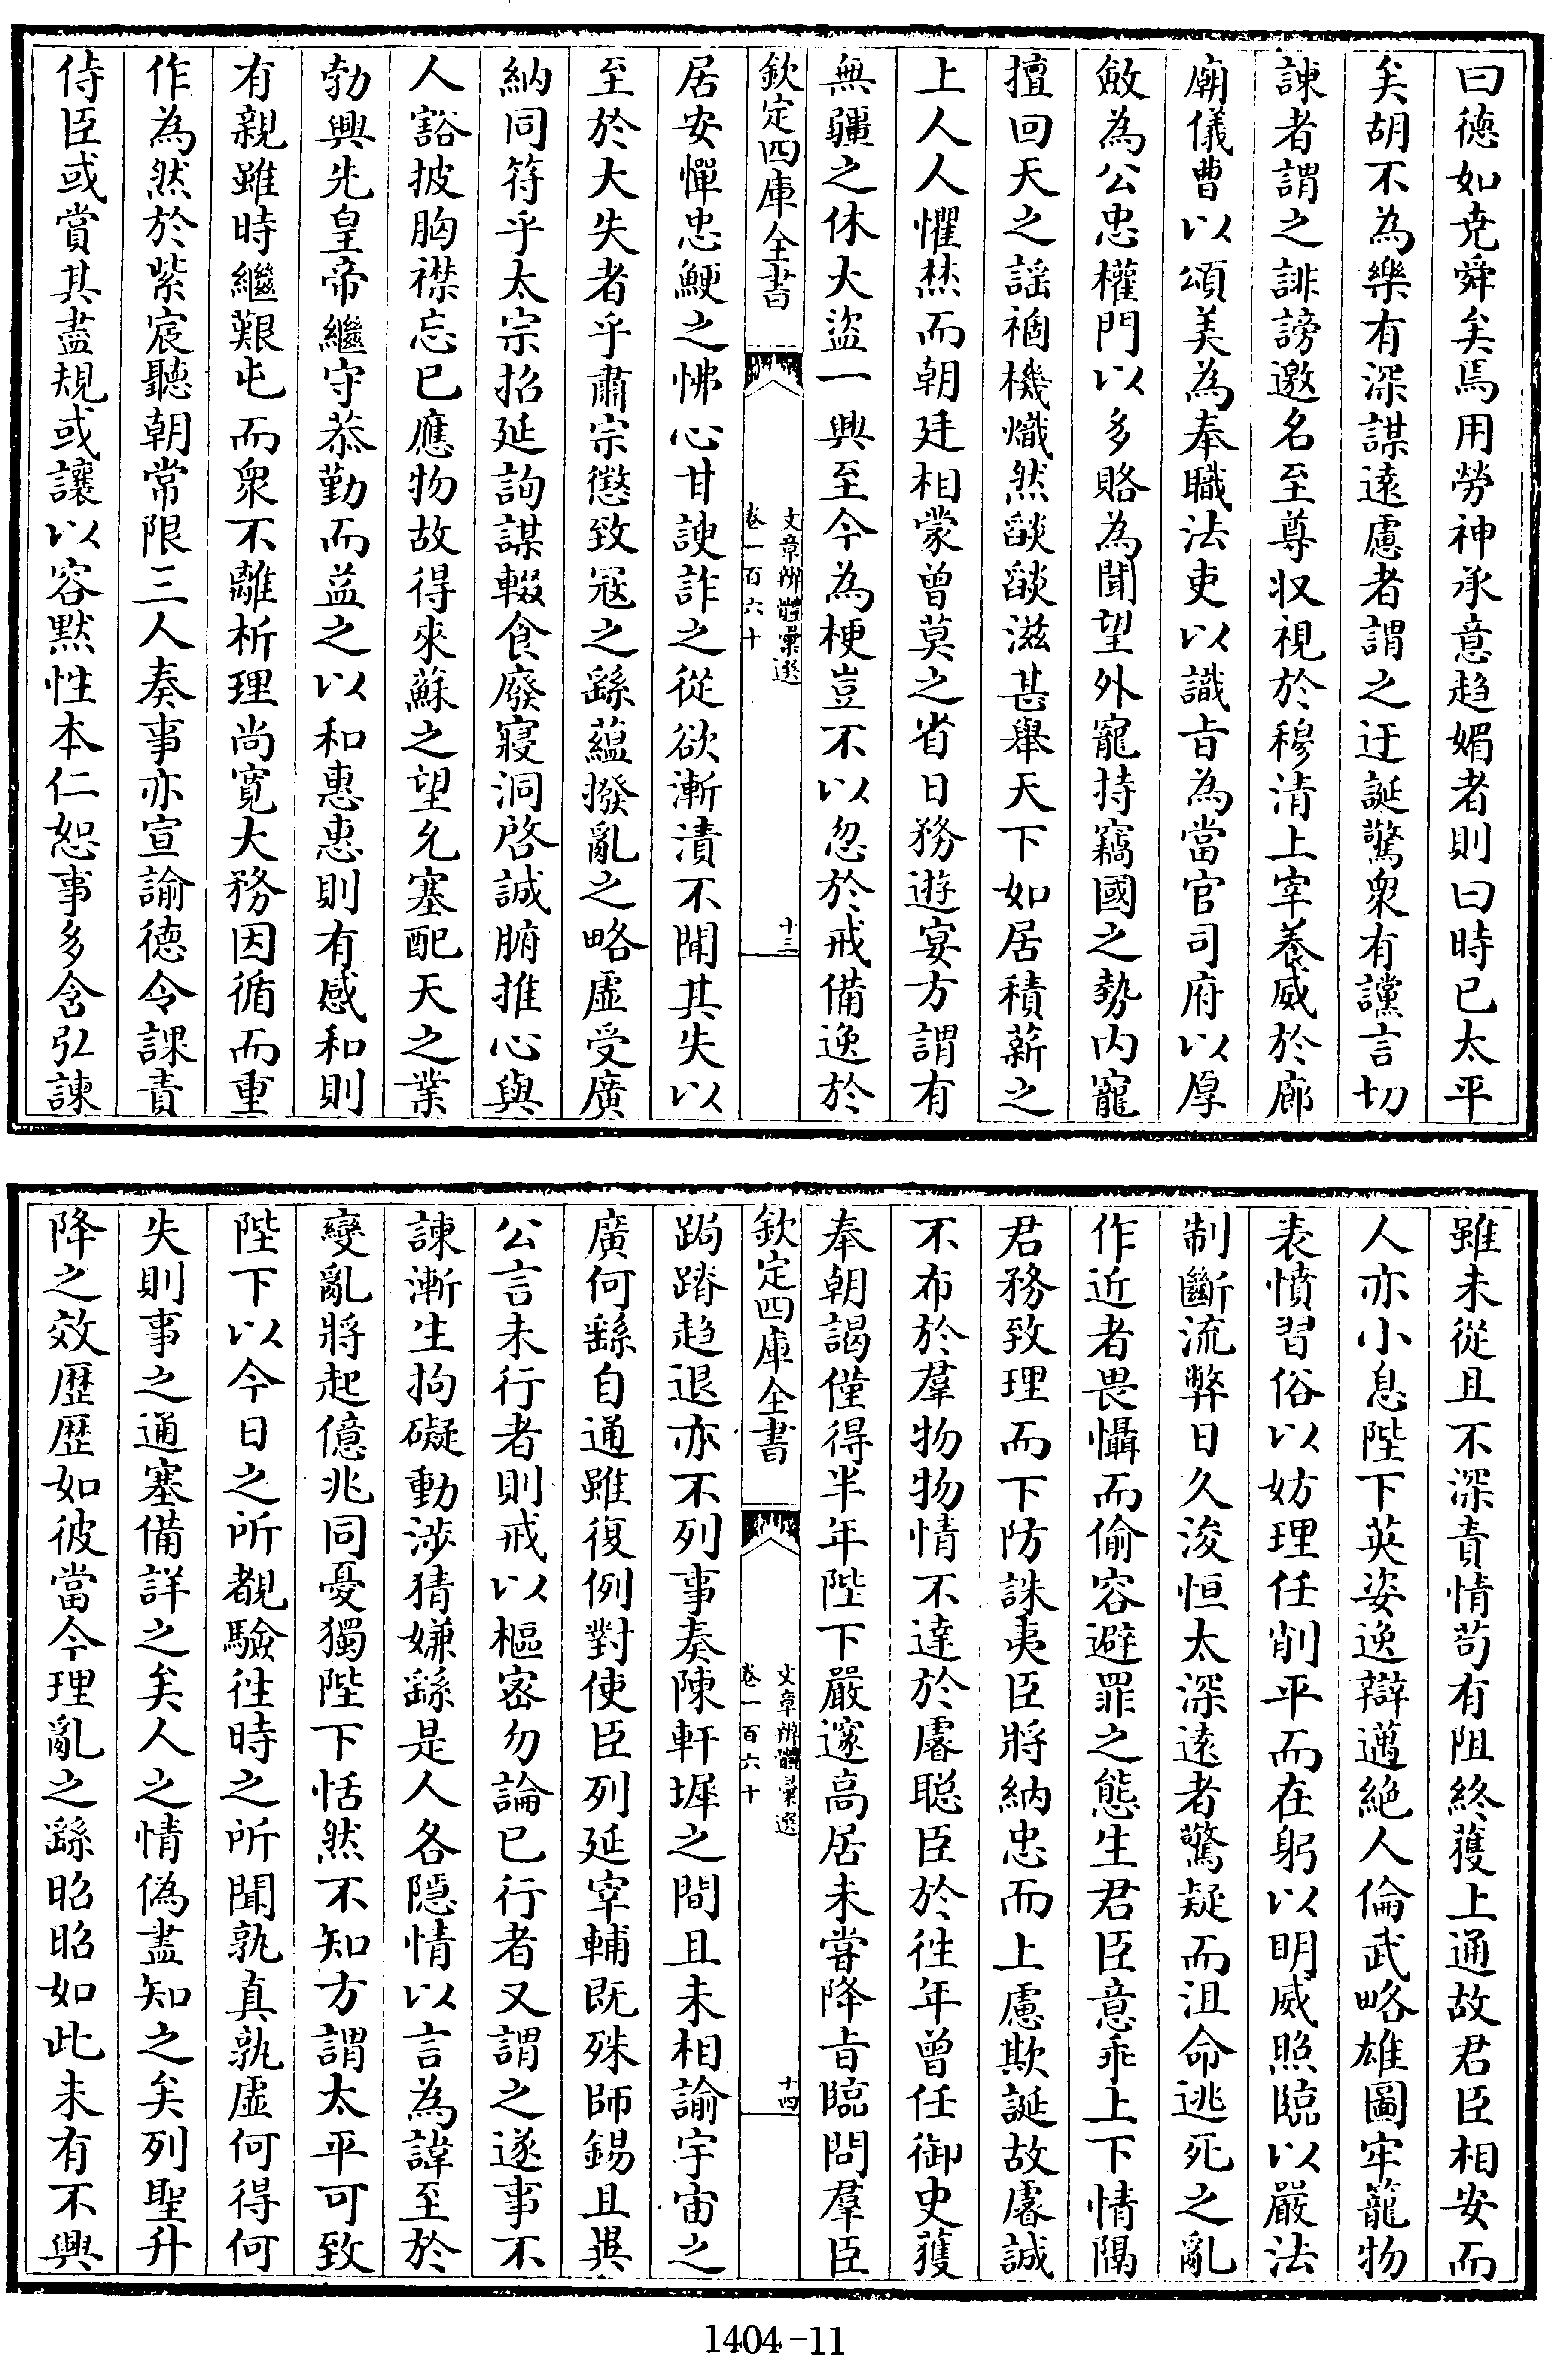 曰徳如堯舜矣焉用勞神承意趋媚者則曰時已太平
矣胡不為樂有深謀逺慮者謂之迂誕驚衆有讜言切
諫者謂之誹謗邀名至尊収視於穆清上宰養威於廊
廟儀曹以頌美為奉職法吏以識㫖為當官司府以厚
斂為公忠權門以多賂為聞望外寵持竊國之勢内寵
擅回天之謡禍機熾然燄燄滋甚舉天下如居積薪之
上人人懼焚而朝廷相蒙曾莫之省日務遊宴方謂有
無疆之休大盜一興至今為梗豈不以忽於戒備逸於
欽定四庫全書
文章辨體彙選
卷一百六十
十三
居安憚忠鯁之怫心甘諛詐之從欲漸漬不聞其失以
至於大失者乎肅宗懲致冦之繇藴撥亂之略虚受廣
納同符乎太宗招延詢謀輟食廢寢洞啓誠腑推心與
人豁披胸襟忘已應物故得來蘇之望允塞配天之業
勃興先皇帝繼守恭勤而益之以和惠惠則有感和則
有親雖時繼艱屯而衆不離析理尚寛大務因循而重
作為然於紫宸聽朝常限三人奏事亦宣諭徳令課責
侍臣或賞其盡規或讓以容黙性本仁恕事多含弘諫
雖未從且不深責情茍有阻終獲上通故君臣相安而
人亦小息陛下英姿逸辯邁絶人倫武略雄圖牢籠物
表憤習俗以妨理任削平而在躬以明威照臨以嚴法
制斷流弊日久浚恒太深逺者驚疑而沮命逃死之亂
作近者畏懾而偷容避罪之態生君臣意乖上下情隔
君務致理而下防誅夷臣將納忠而上慮欺誕故睿誠
不布於羣物物情不達於睿聪臣於徃年曾任御史獲
奉朝謁僅得半年陛下嚴邃高居未甞降㫖臨問羣臣
欽定四庫全書
文章辨體彙選
卷一百六十
十四
跼蹐趋退亦不列事奏陳軒墀之間且未相諭宇宙之
廣何繇自通雖復例對使臣列延宰輔既殊師錫且異
公言未行者則戒以樞密勿論已行者又謂之遂事不
諫漸生拘礙動渉猜嫌繇是人各隠情以言為諱至於
變亂將起億兆同憂獨陛下恬然不知方謂太平可致
陛下以今日之所覩驗徃時之所聞孰真孰虚何得何
失則事之通塞備詳之矣人之情偽盡知之矣列聖升
降之效歴歴如彼當今理亂之繇昭昭如此未有不興
1404-11